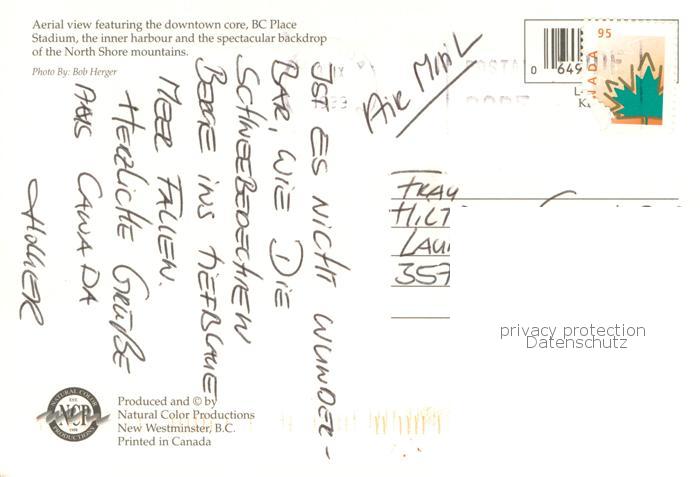 Aerial view featuring the downtown core, BC Place
Stadium, the inner harbour and the spectacular backdrop
of the North Shore mountains.
Photo By: Bob Herger
AIR MAIL
0 649
CANADA 95
IST ES NICHT WUNDER-
BAR, WIE DIE
SCHNEEBEDECKTEN
BERGE INS TIEFBLAUE
MEER FALLEN.
HERZLICHE GRÜßE
AUS CANADA
FRAU
HILT
LAU
357
privacy protection
Datenschutz
NATURAL COLOR
NCP
PRODUCTIONS
Produced and © by
Natural Color Productions
New Westminster, B.C.
Printed in Canada